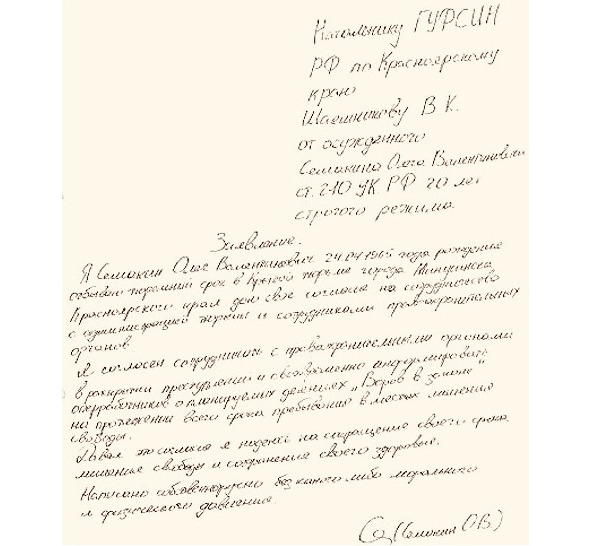 Начальнику ГУФСИН
РФ по Красноярскому
краю
Шаешникову В К.
от осужденного
Семакина Олега Валентиновича
ст. 210 УК РФ 20 лет
строгого режима.
Заявление.
Я Семакин Олег Валентинович 24.04.1965 года рождения
отбываю тюремный срок в Крытой тюрьме города Минусинска
Красноярского края даю свое согласие на сотрудничество
с администрацией тюрьмы и сотрудниками правоохранительных
органов
Я согласен сотрудничать с правоохранительными органами
в раскрытии преступлений и своевременно информировать
оперработников о планируемых деяниях „Воров в законе"
на протяжении всего срока пребывания в местах лишения
свободы.
я надеюсь на сокращение своего срока
лишения свободы и сохранение своего здоровья.
Написано собственноручно без какого либо морального
и физического давления.
(Семакин О В)